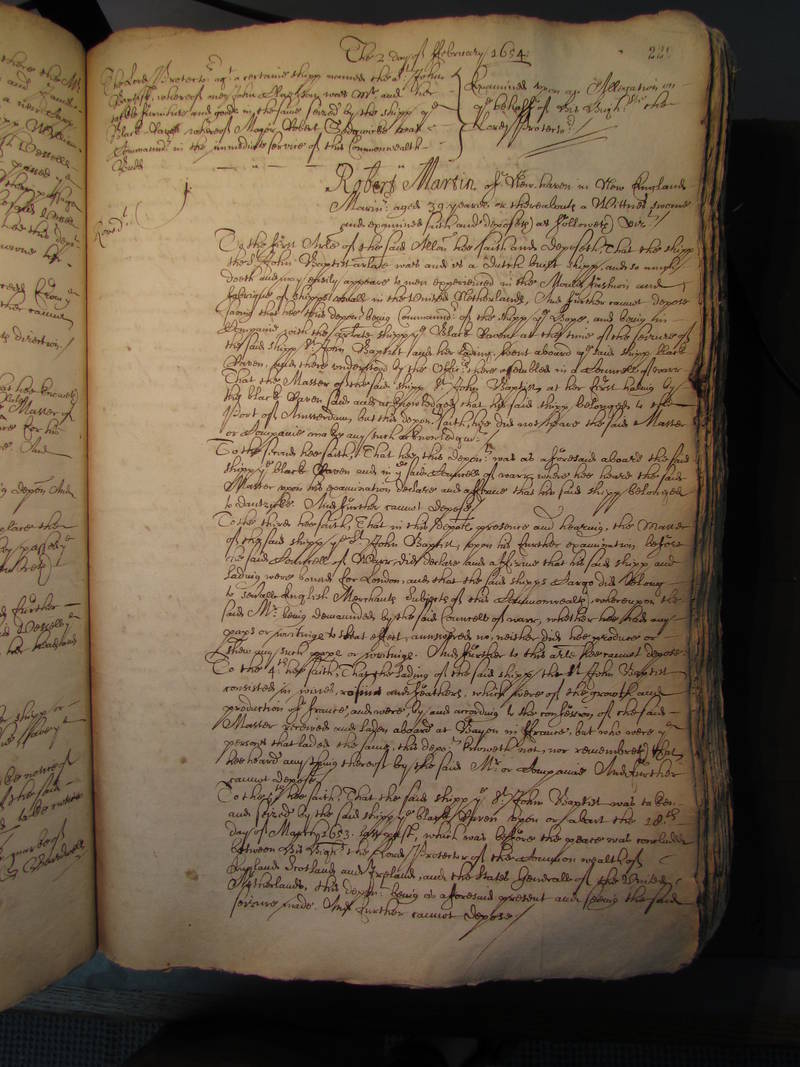 The 2 day of ffebruary 1654
The Lord Protector agt a certaine shipp named the St John
Baptist, whereof one John was Mr and her
tackle furniture and goods in the same seized by the shipp ye
Black Raven whereof Major Robert Sedgwicke was
Commander in the immediate service of this Commonwealth
Examined upon an Allegation on
ye behalfe of his Highnes the
Lord Protector
Robert Martin of New haven in New England
Mariner aged 39 yeares or thereabouts a Wittnes sworne
and examined saith and deposeth as followeth vizt
To the first Arle of the said Allon hee saith and deposeth That the shipp
the St John Baptist arlate was and is a Dutch built shipp, and so much
doeth and may easily appeare to men experienced in the Mould fashion and
fabrique of shipps in the United Netherlands, And further cannot depose
saving that hee this depont being Commander of the shipp ye Hope, and being in
Companie with the arlate shipp ye Black Raven at the time of the seizure of
the said shipp St John Baptist and her lading, went aboard ye said shipp black
Raven, and there understood by the Officrs there assembled in a Councell of warr
That the Master of the said shipp St John Baptist at her first haling by
the black Raven said and acknowledged that his said shipp belonged to the
Port of Amsterdam, but this depont saith, hee did not heare the said Master
or Companie make any such acknowledgmt
To the second hee saith, That hee this depont was as aforesaid aboard the said
shipp ye black Raven and in ye said Councell of warr, where hee heard the said
Master upon his examination declare and affirme that his said shipp belonged
to And further cannot depose
To the third hee saith, That in this deponts presence and hearing, the Master
of the said shipp ye St John Baptist, upon his further examination before
the said Councell of Warr, did declare and affirme that his said shipp and
lading were bound for London, and that the said shipps Cargo did belong
to severall English Merchants subjects of this Commonwealth, whereupon the
said Mr being demanded by the said Councell of warr, whether hee had any
paps or writinge to that effect, answered no, neither did hee produce or
shew any such pape or writinge. And further to this arle hee cannot depose
To the 4th hee saith, That the lading of the said shipp the St John Baptist
consisted in wines, rosin and feathers, which were of the growth and
production of france, and were by and according to the confession of the said
Master received and laden aboard at Bayon in ffrance, but who were ye
persons that laded the same, this depont knoweth not, nor remembreth that
hee heard any thing thereof by the said Mr or Companie And further
cannot depose
To the 5th hee saith, That the said shipp ye St John Baptist was taken
and seized by the said shipp ye black Raven upon or about the 28th
day of March 1653 last past, which was before the peace was concluded
between his Highnes the Lord Protector of the Common wealth of
England Scotland and Ireland, and the States Generall of the United
Netherlands, this depont being as aforesaid present and seeing the said
seizure made. And further cannot depose